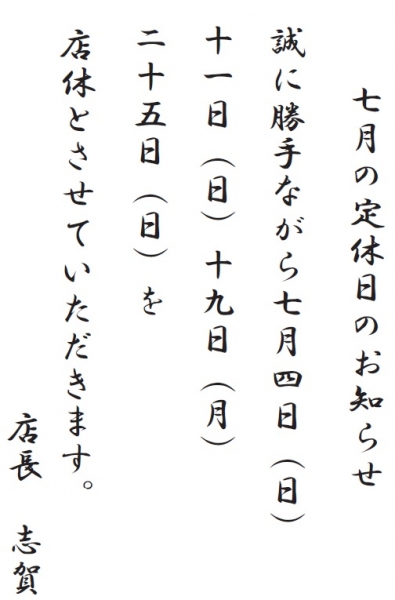 七月の定休日のお知らせ
誠に勝手ながら七月四日（日）
十一日（日）十九日（月）
二十五日（日）を
店休とさせていただきます。
店長　志賀